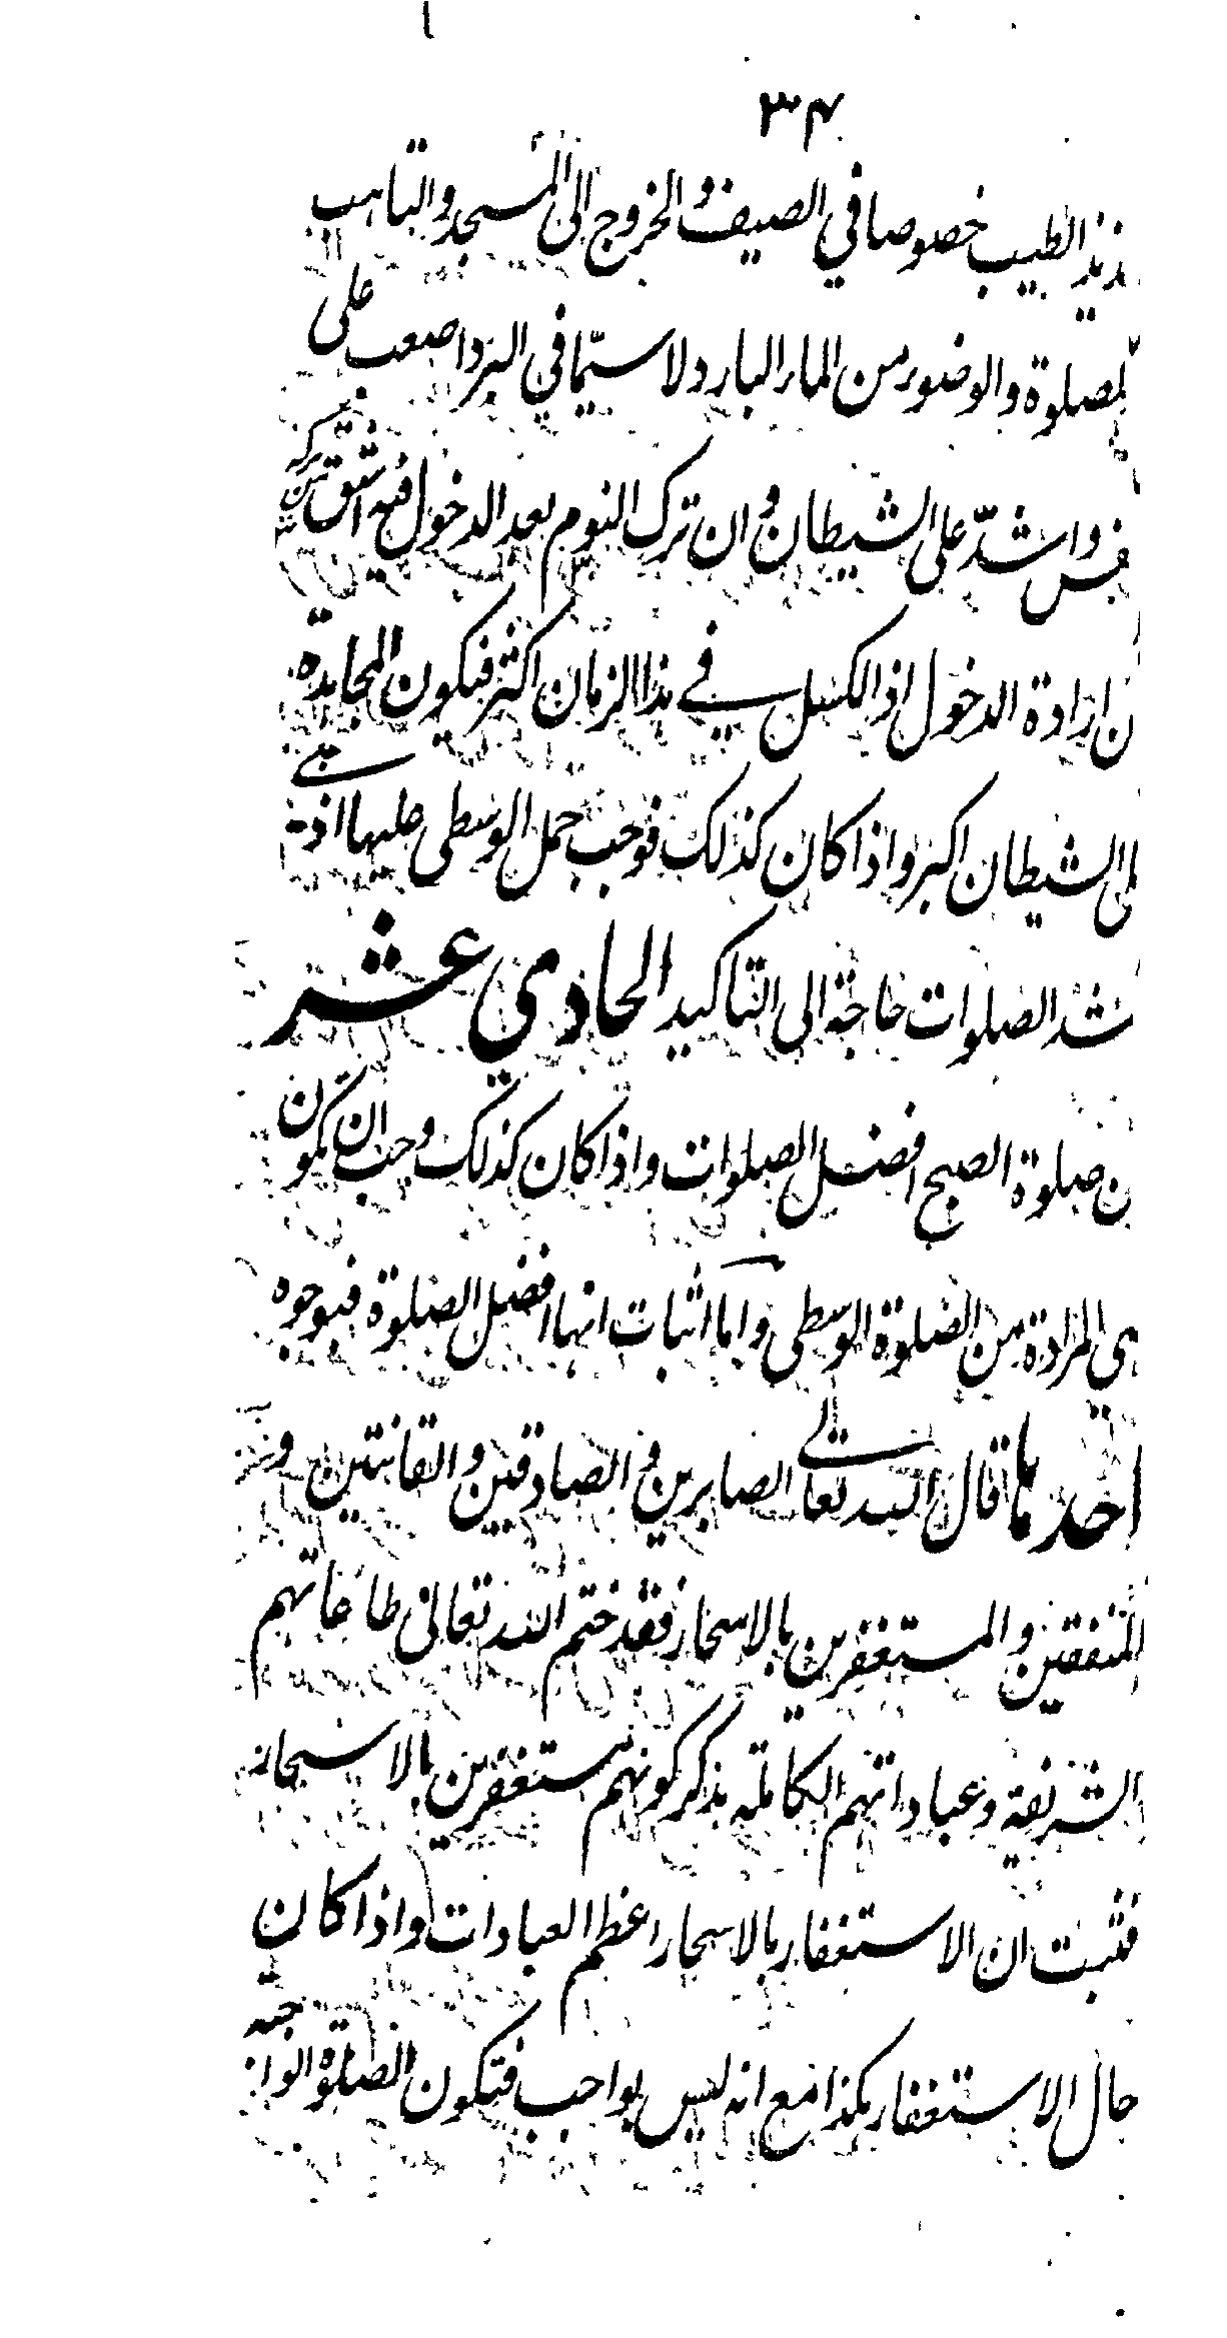 ۳۴
الطيب خصوصا في الصيف والخروج الى المسجد والتاهب
للصلوة والوضوء من الماء البارد ولا سيّما في البرد اصعب على
واشدّ على الشيطان وان ترك النوم بعد الدخول فيه اشق من تركه
ن ارادة الدخول اذ الكسل في هذا الزمان اكثر فيكون المجاهدة
على الشيطان اكبر واذا كان كذلك فوجب حمل الوسطى عليها اذ هي
اشد الصلوات حاجة الى التاكيد الحادي عشر
ن صلوة الصبح افضل الصلوات واذا كان كذلك وجب ان يكون
هي المرادة من الصلوة الوسطى واما اثبات انها افضل الصلوة فبوجوه
احدها ما قال الله تعالى الصابرين والصادقين والقانتين و
المنفقين والمستغفرين بالاسحار فقد ختم الله تعالى طاعاتهم
الشريفة وعباداتهم الكاملة بذكر كونهم مستغفرين بالاسحار
فثبت ان الاستغفار بالاسحار اعظم العبادات واذا كان
حال الاستغفار هكذا مع انه ليس بواجب فتكون الصلوة الواجبة